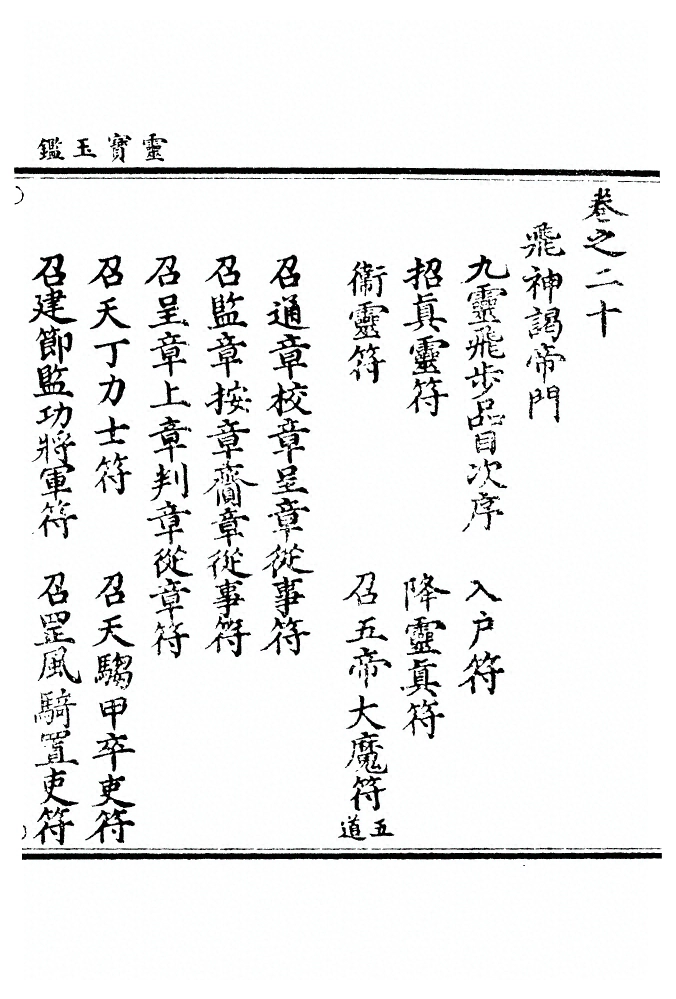 靈寶玉鑑
卷之二十
飛神謁帝門
九靈飛步品目次序 入户符
招真靈符 降靈真符
衞靈符 召五帝大魔符五道
召通章校章呈章從事符
召監章按章齎章從事符
召呈章上章判章從章符
召天丁力士符 召天騶甲卒吏符
召建節監功將軍符 召罡風騎置吏符